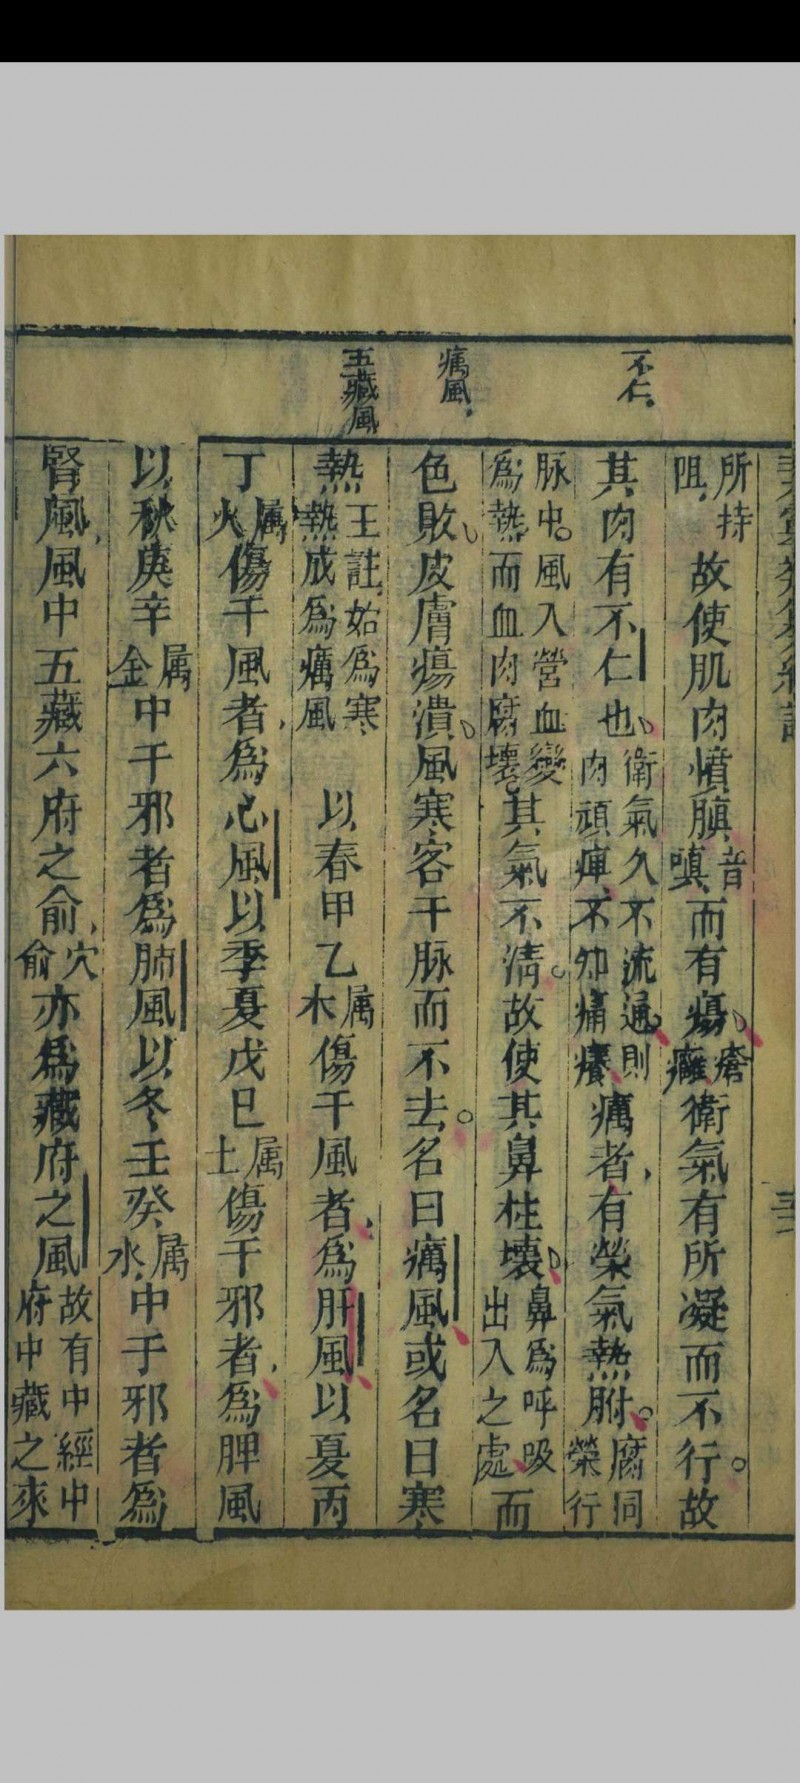 不仁。
癘風
五藏風
所持阻故使肌肉憤䐜音嗔而有瘍瘡癰衛氣有所凝而不行。故
其肉有不仁也衛氣久不流通則肉頑痺不知痛癢癘者有榮氣熱胕。腐同榮行
脉中。風入營血變爲熱而血肉腐壞其氣不清。故使其鼻柱壞鼻爲呼吸出入之處而
色敗皮膚瘍潰風寒客于脉而不去。名曰癘風或名曰寒
熱王註始爲寒熱成爲癘風以春甲乙属木傷于風者爲肝風以夏丙
丁属火傷于風者爲心風以季夏戊己属土傷于邪者爲脾風
以秋庚辛属金中于邪者爲肺風以冬壬癸属水中于邪者爲
腎風風中五藏六府之俞穴俞亦爲藏府之風故有中經中府中藏之來